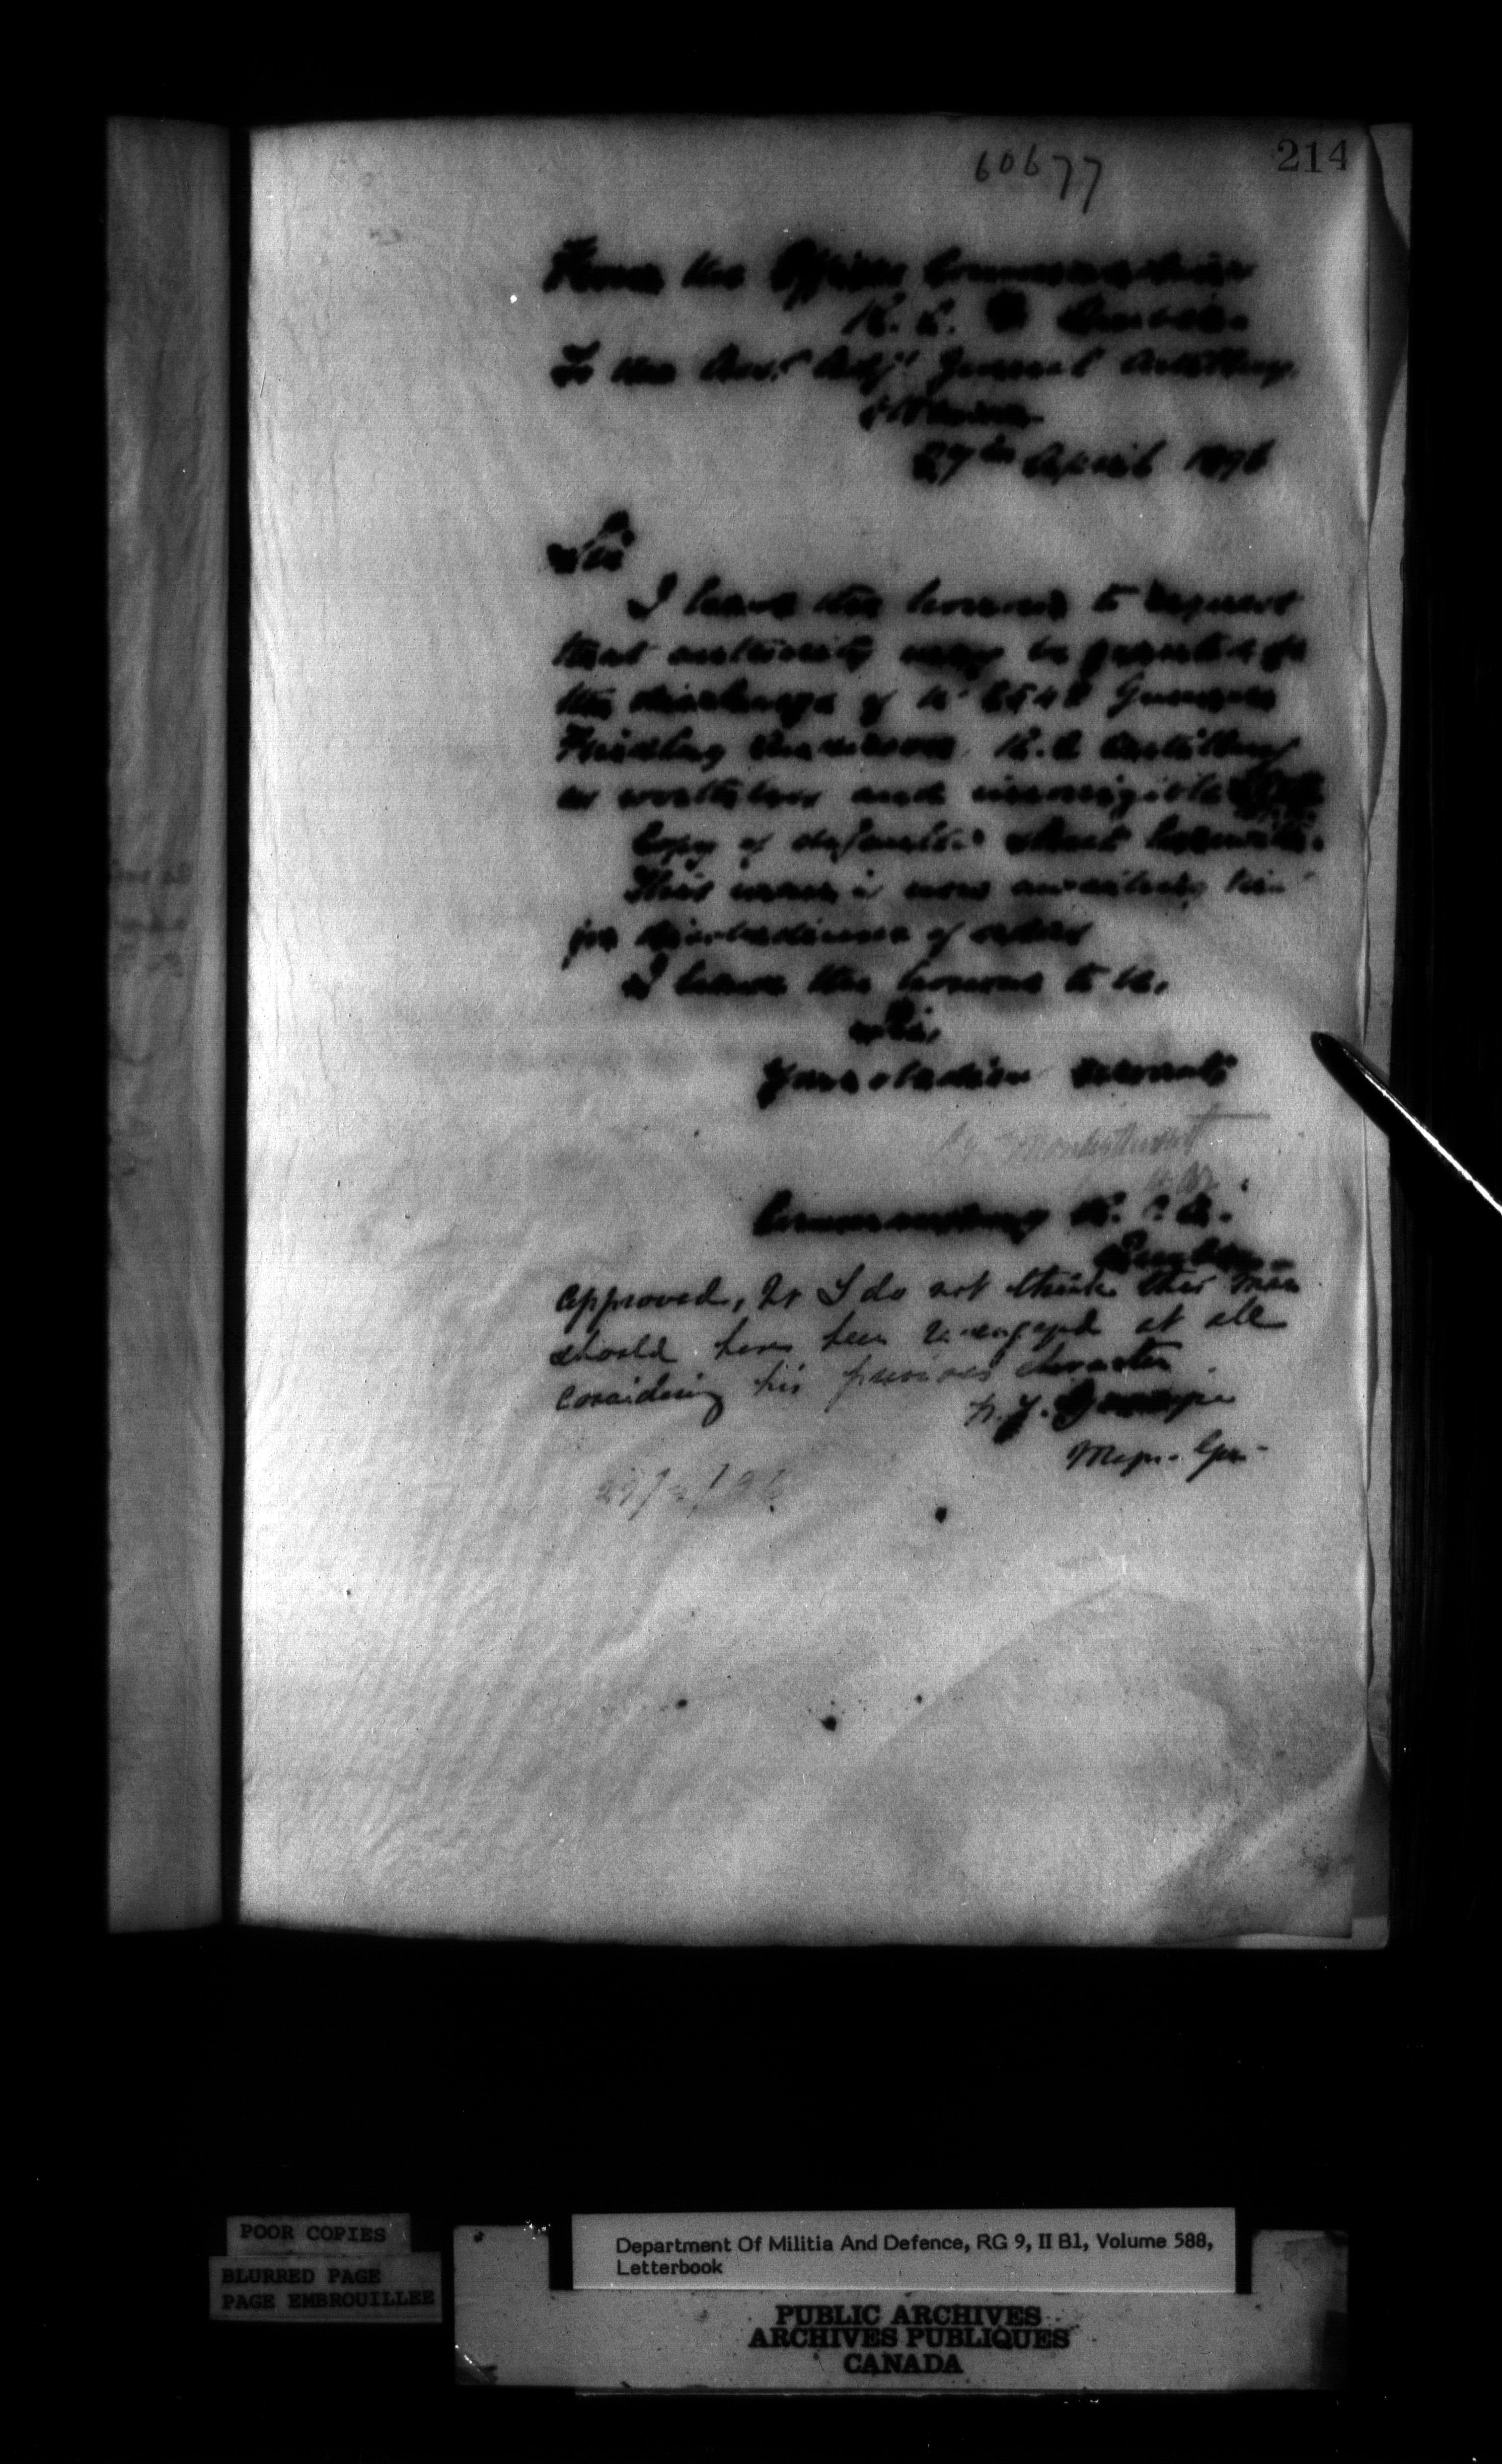 214
60677
From the Officer Commanding
R. C. A. Quebec
To the Asst. Adjt General Artillery
Ottawa
27th April 1896
Sir
I have the honour to request
that authority may be granted for
the discharge of Gunner
R.C. Artillery
as worthless and incorrigible
Copy of defaulter sheet herewith.
This man is now awaiting
for disobedience of orders
I have the honour to be,
Sir,
Your obedient servant
Commanding R. C. A.
Quebec
Approved, I do not think this man
should have been re-engaged at all
considering his previous character
Major Gen
POOR COPIES
BLURRED PAGE
PAGE EMBROUILLEE
Department Of Militia And Defence, RG 9, II B1, Volume 588,
Letterbook
PUBLIC ARCHIVES
ARCHIVES PUBLIQUES
CANADA